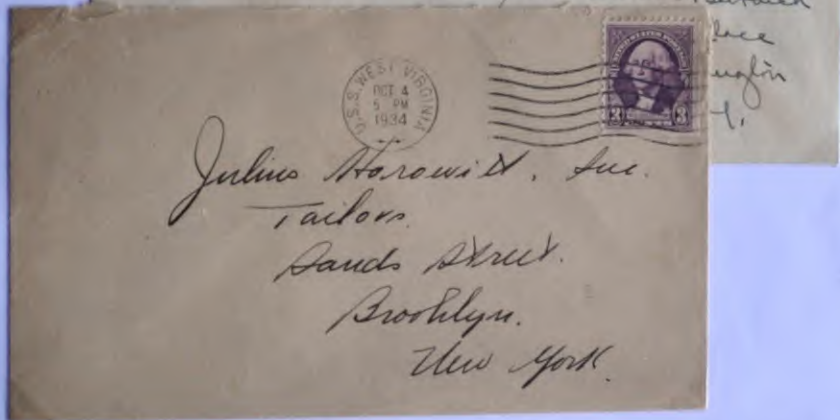 U.S.S. WEST VIRGINIA
OCT 4
5 PM
1934
3 3
Julius Horowitz, Inc.
Tailors.
Sands Street.
Brooklyn.
New York.